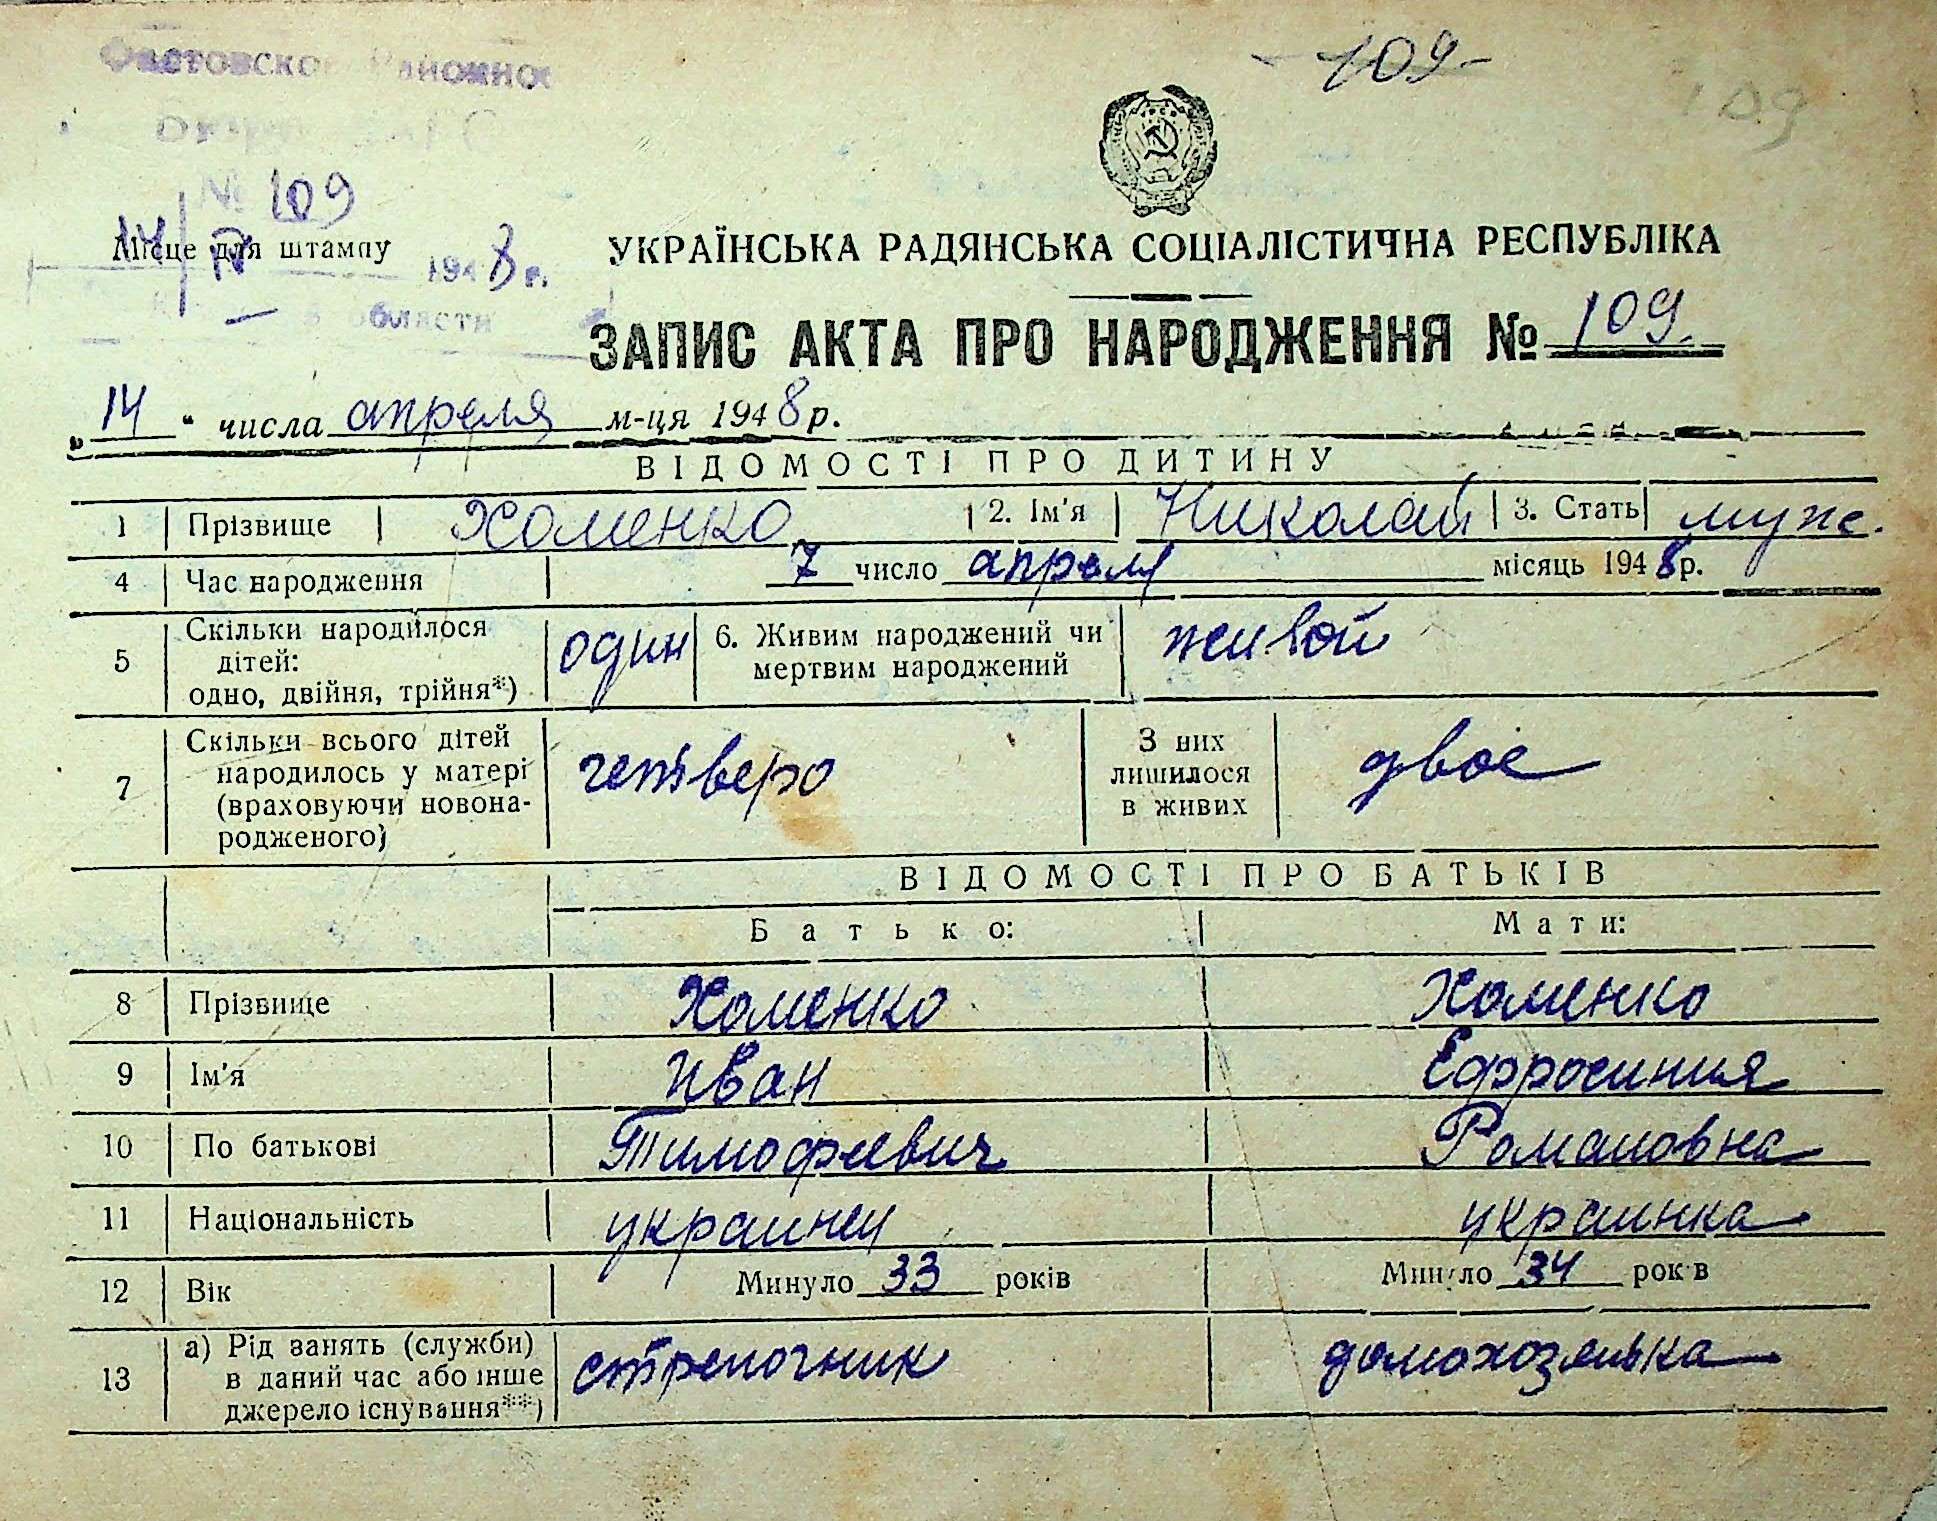 Фастовское Районное
- 109 -
109
№ 109
Місце для штампу
14/IV 1948 г.
области
УКРАЇНСЬКА РАДЯНСЬКА СОЦІАЛІСТИЧНА РЕСПУБЛІКА
ЗАПИС АКТА ПРО НАРОДЖЕННЯ № 109.
„14“ числа апреля м-ця 1948 р.
ВІДОМОСТІ ПРО ДИТИНУ
1 Прізвище Хоменко 2. Ім'я Николай 3. Стать муж.
4 Час народження 7 число апреля місяць 1948 р.
5 Скільки народилося дітей: одно, двійня, трійня*) один 6. Живим народжений чи мертвим народжений живой
7 Скільки всього дітей народилось у матері (враховуючи новонародженого) четверо З них лишилося в живих двое
ВІДОМОСТІ ПРО БАТЬКІВ
Батько: Мати:
8 Прізвище Хоменко Хоменко
9 Ім'я Иван Ефросиния
10 По батькові Тимофеевич Романовна
11 Національність украинец украинка
12 Вік Минуло 33 років Минуло 34 років
13 а) Рід занять (служби) в даний час або інше джерело існування**) стрелочник домохозяйка